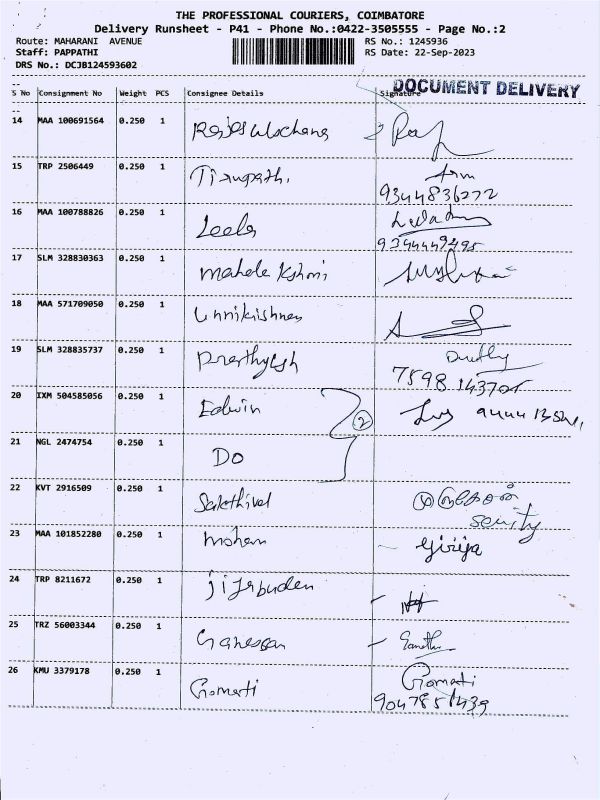 THE PROFESSIONAL COURIERS, COIMBATORE
Delivery Runsheet - P41 - Phone No.:0422-3505555 - Page No.:2
Route: MAHARANI AVENUE RS No.: 1245936
Staff: PAPPATHI RS Date: 22-Sep-2023
DRS No.: DCJB124593602
DOCUMENT DELIVERY
S No Consignment No Weight PCS Consignee Details Signature
14 MAA 100691564 0.250 1 Rajes Wochana Raj
15 TRP 2506449 0.250 1 Tirupathi.
9344836272
16 MAA 100788826 0.250 1 Leela
9344449495
17 SLM 328830363 0.250 1 Mahalekshmi
18 MAA 571709050 0.250 1 Unnikishnan
19 SLM 328835737 0.250 1 Prathyesh
7598 143705
20 IXM 504585056 0.250 1 Edwin 2
21 NGL 2474754 0.250 1 DO
22 KVT 2916509 0.250 1 Sakthivel
seurity
23 MAA 101852280 0.250 1 Mohan Girija
24 TRP 8211672 0.250 1
25 TRZ 56003344 0.250 1 Ganessan
26 KMU 3379178 0.250 1 Gomati Gomati
9047851439